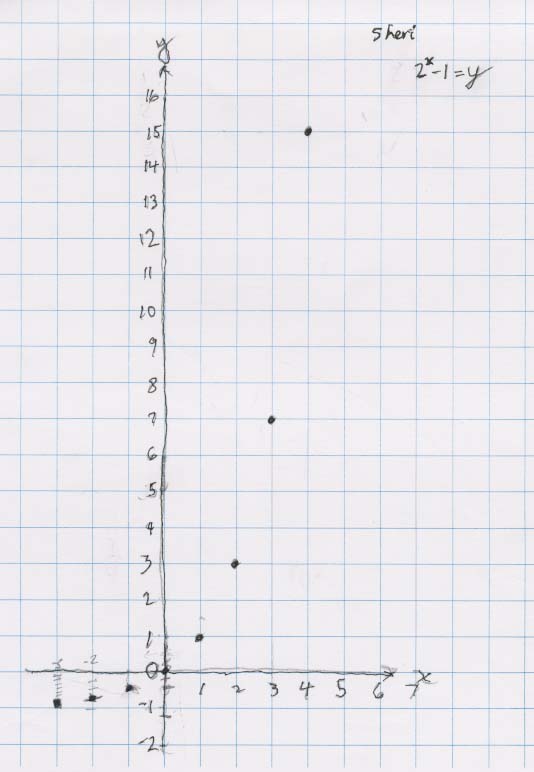 Sheri
2^x-1=y
y
16
15
14
13
12
11
10
9
8
7
6
5
4
3
2
1
0
-2
1 2 3 4 5 6 7 x
-1
-2